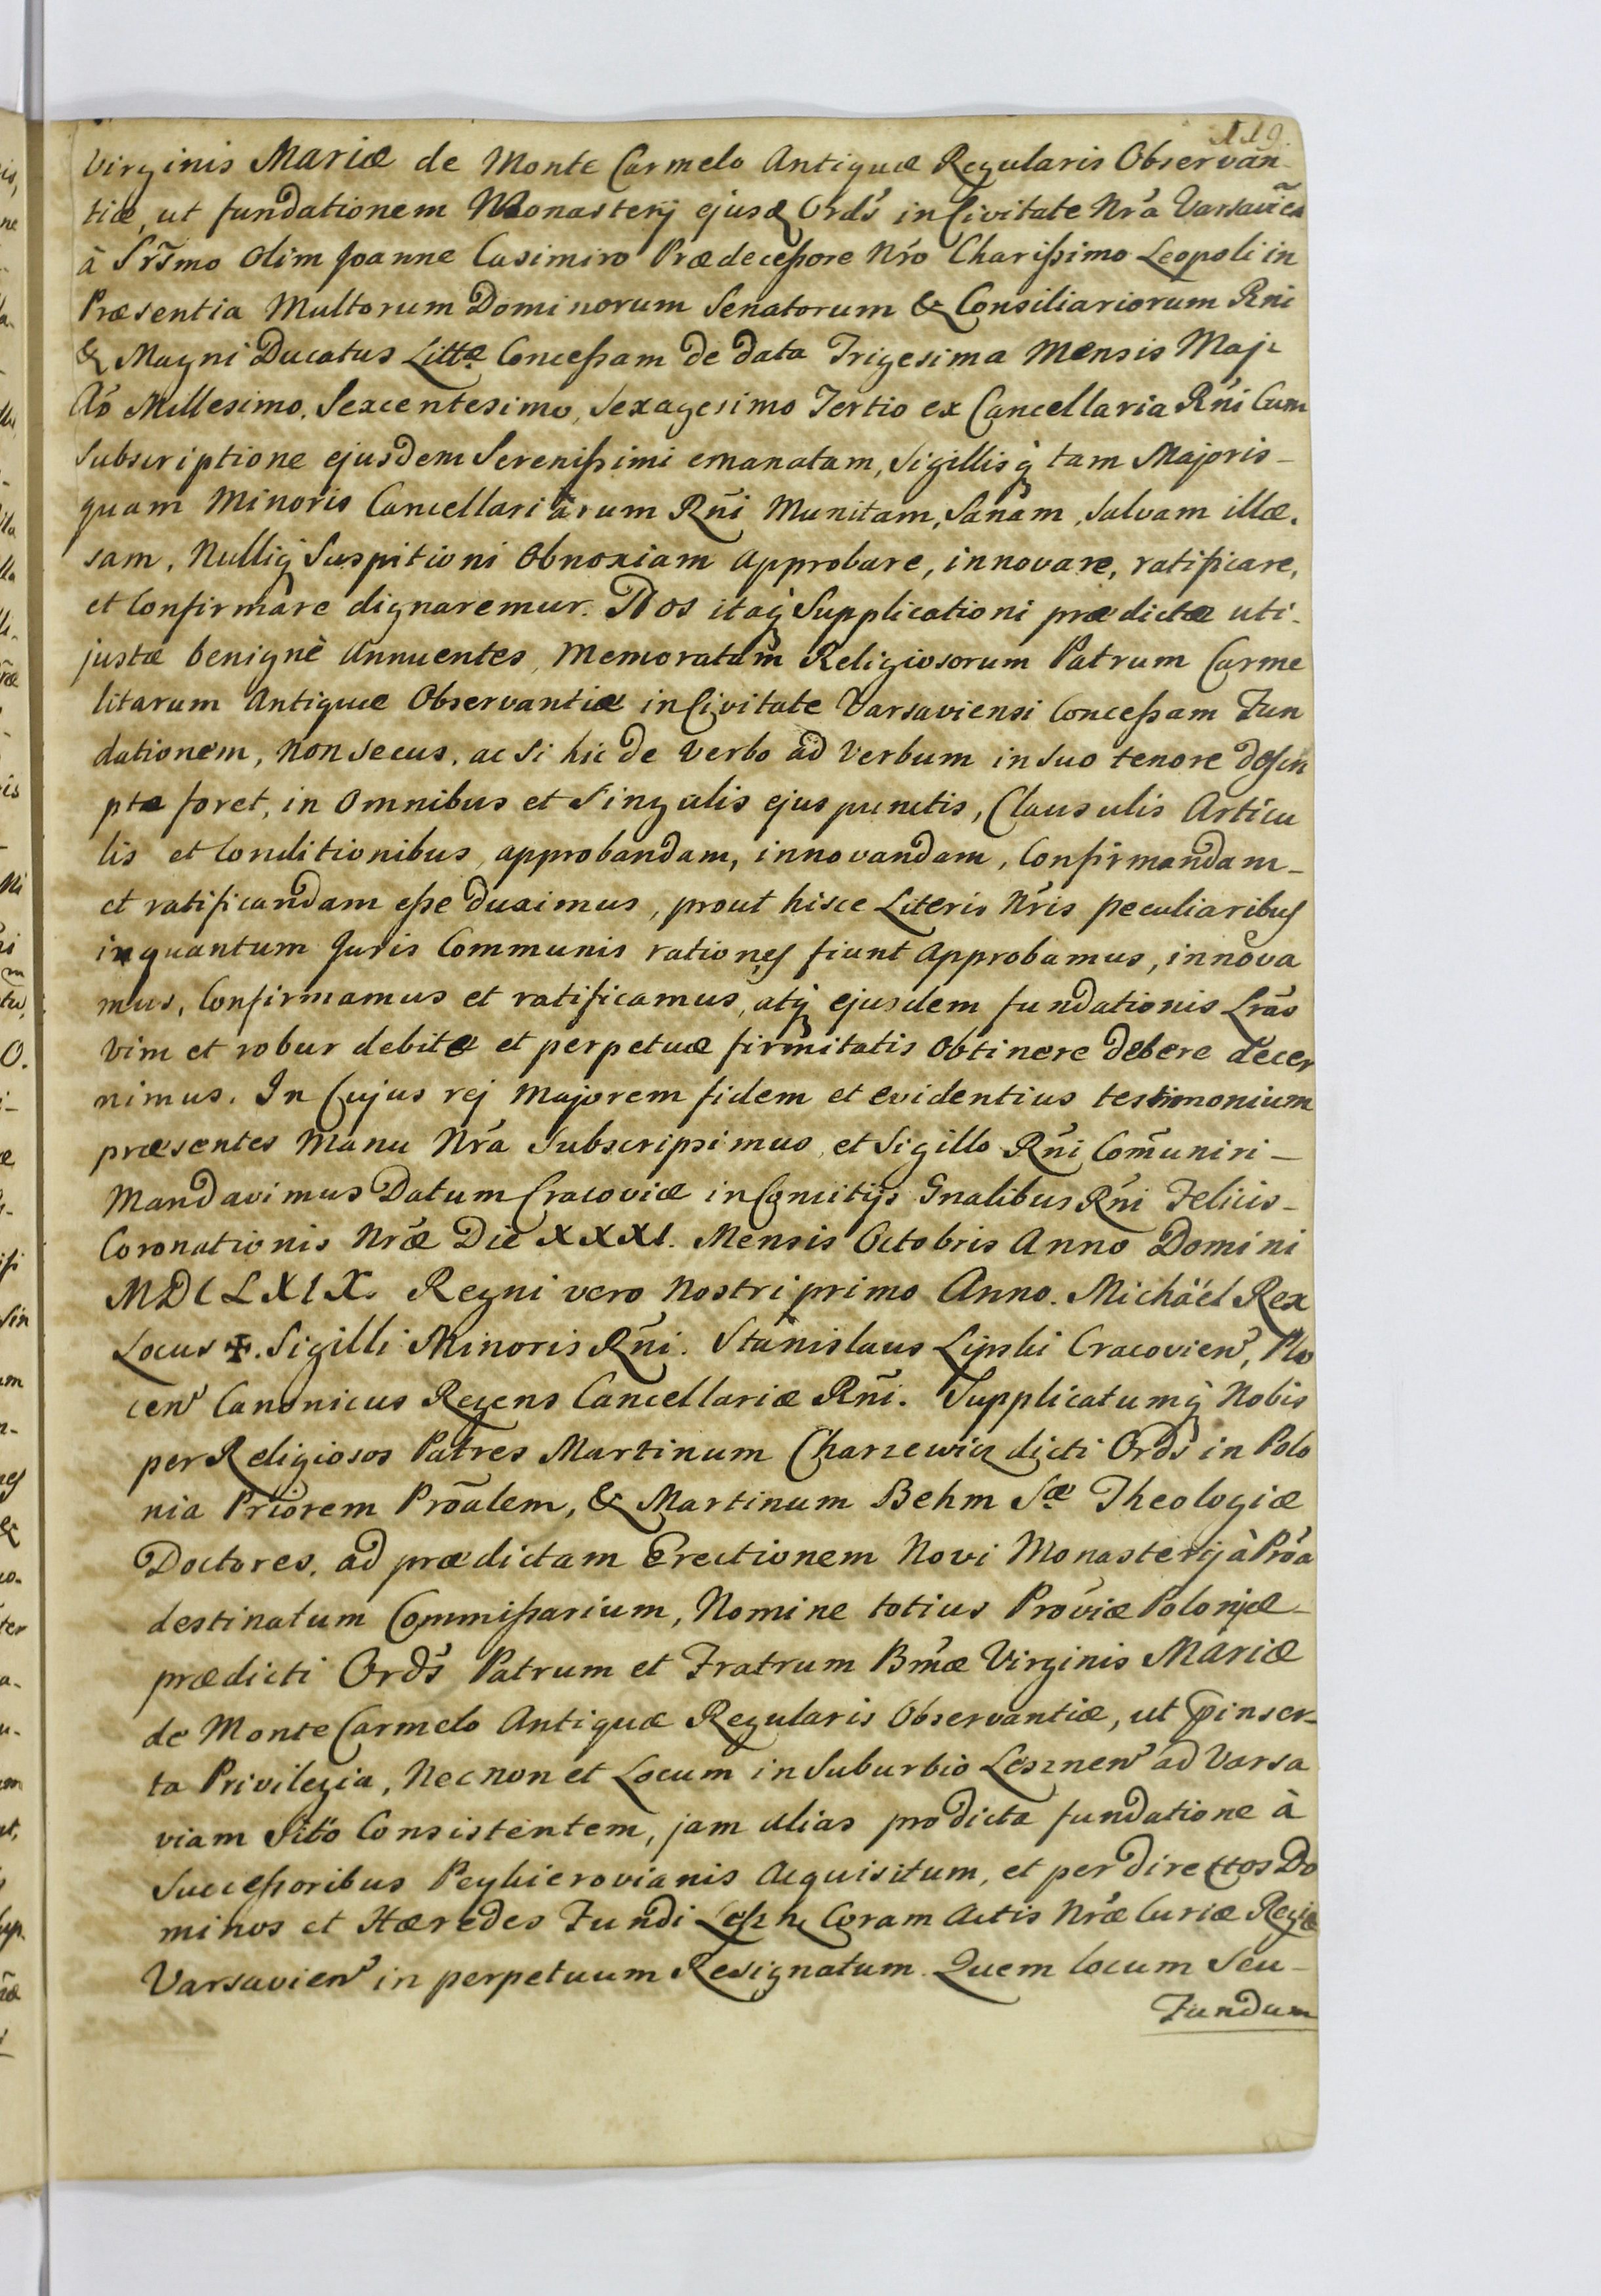 119.
Virginis Mariæ de Monte Carmelo Antiquæ Regularis Observan-
tiæ, ut fundationem Monasterij ejusq Ord̃s in Civitate Nr̃a Varsavien̄
à Sr̃smo olim Joanne Casimiro Prædeceßore Nr̃o Charißimo Leopoli in
Præsentia Multorum Dominorum Senatorum & Consiliariorum Rni
& Magni Ducatus Littæ Conceßam de data Trigesima Mensis Maji
Aõ Millesimo, Sexcentesimo, Sexagesimo Tertio ex Cancellaria Rñi Cum
Subscriptione ejusdem Serenißimi emanatam, Sigillisq̀ tam Majoris-
quam Minoris Cancellariarum Rñi Munitam, Sanam, Salvam illæ.
sam, Nulliq̀ Suspitioni Obnoxiam Approbare, innovare, ratificare,
et Confirmare dignaremur. Nos itaq̀ Supplicationi prædictæ uti-
justæ benignè Annuentes, Memoratam Religiosorum Patrum Carme
litarum Antiquæ Observantiæ in Civitate Varsaviensi Conceßam Fun
dationem, non secus, ac si hic de Verbo ad Verbum in suo tenore descri
pta foret, in Omnibus et Singulis ejus punctis, Clausulis Articu
lis et Conditionibus, approbandam, innovandam, Confirmandam-
et ratificandam eße duximus, prout hisce Literis Nr̃is peculiaribus
in quantum Juris Communis rationes fiunt Approbamus, innova
mus, Confirmamus et ratificamus, atq̀ ejusdem fundationis Lr̃as
vim et robur debitæ et perpetuæ firmitatis obtinere debere decer
nimus. In Cujus rej majorem fidem et evidentius testimonium
præsentes Manu Nr̃a Subscripsimus, et Sigillo Rñi Com̃uniri-
Mandavimus Datum Cracoviæ in Comitijs Gnalibus Rñi Felicis-
Coronationis Nr̃æ Die XXXI. Mensis Octobris Anno Domini
MDCLXIX. Regni vero Nostri primo Anno. Michäel Rex
Locus ✠. Sigilli Minoris Rñi. Stanislaus Lipski Cracovien̄, Plo
cen̄ Canonicus Regens Cancellariæ Rñi. Supplicatumq̀ Nobis
per Religiosos Patres Martinum Charzewicz dicti Ord̃s in Polo
nia Priorem Prõalem, & Martinum Behm Sæ Theologiæ
Doctores, ad prædictam Erectionem Novi Monasterij à Prõa
destinatum Commißarium, Nomine totius Prõviæ Poloniæ-
prædicti Ord̃s Patrum et Fratrum Bm̃æ Virginis Mariæ
de Monte Carmelo Antiquæ Regularis Observantiæ, ut p̱inser-
ta Privilegia, Nec non et Locum in Suburbio Lesznen̄ ad Varsa
viam Sitõ Consistentem, jam alias pro dicta fundatione à
Succeßoribus Peykierovianis Acquisitum, et per directos Do
minos et Hæredes Fundi Leszn̄ Coram Actis Nr̃æ Curiæ Regiæ
Varsavien̄ in perpetuum Resignatum. Quem locum Seu-
Fundum